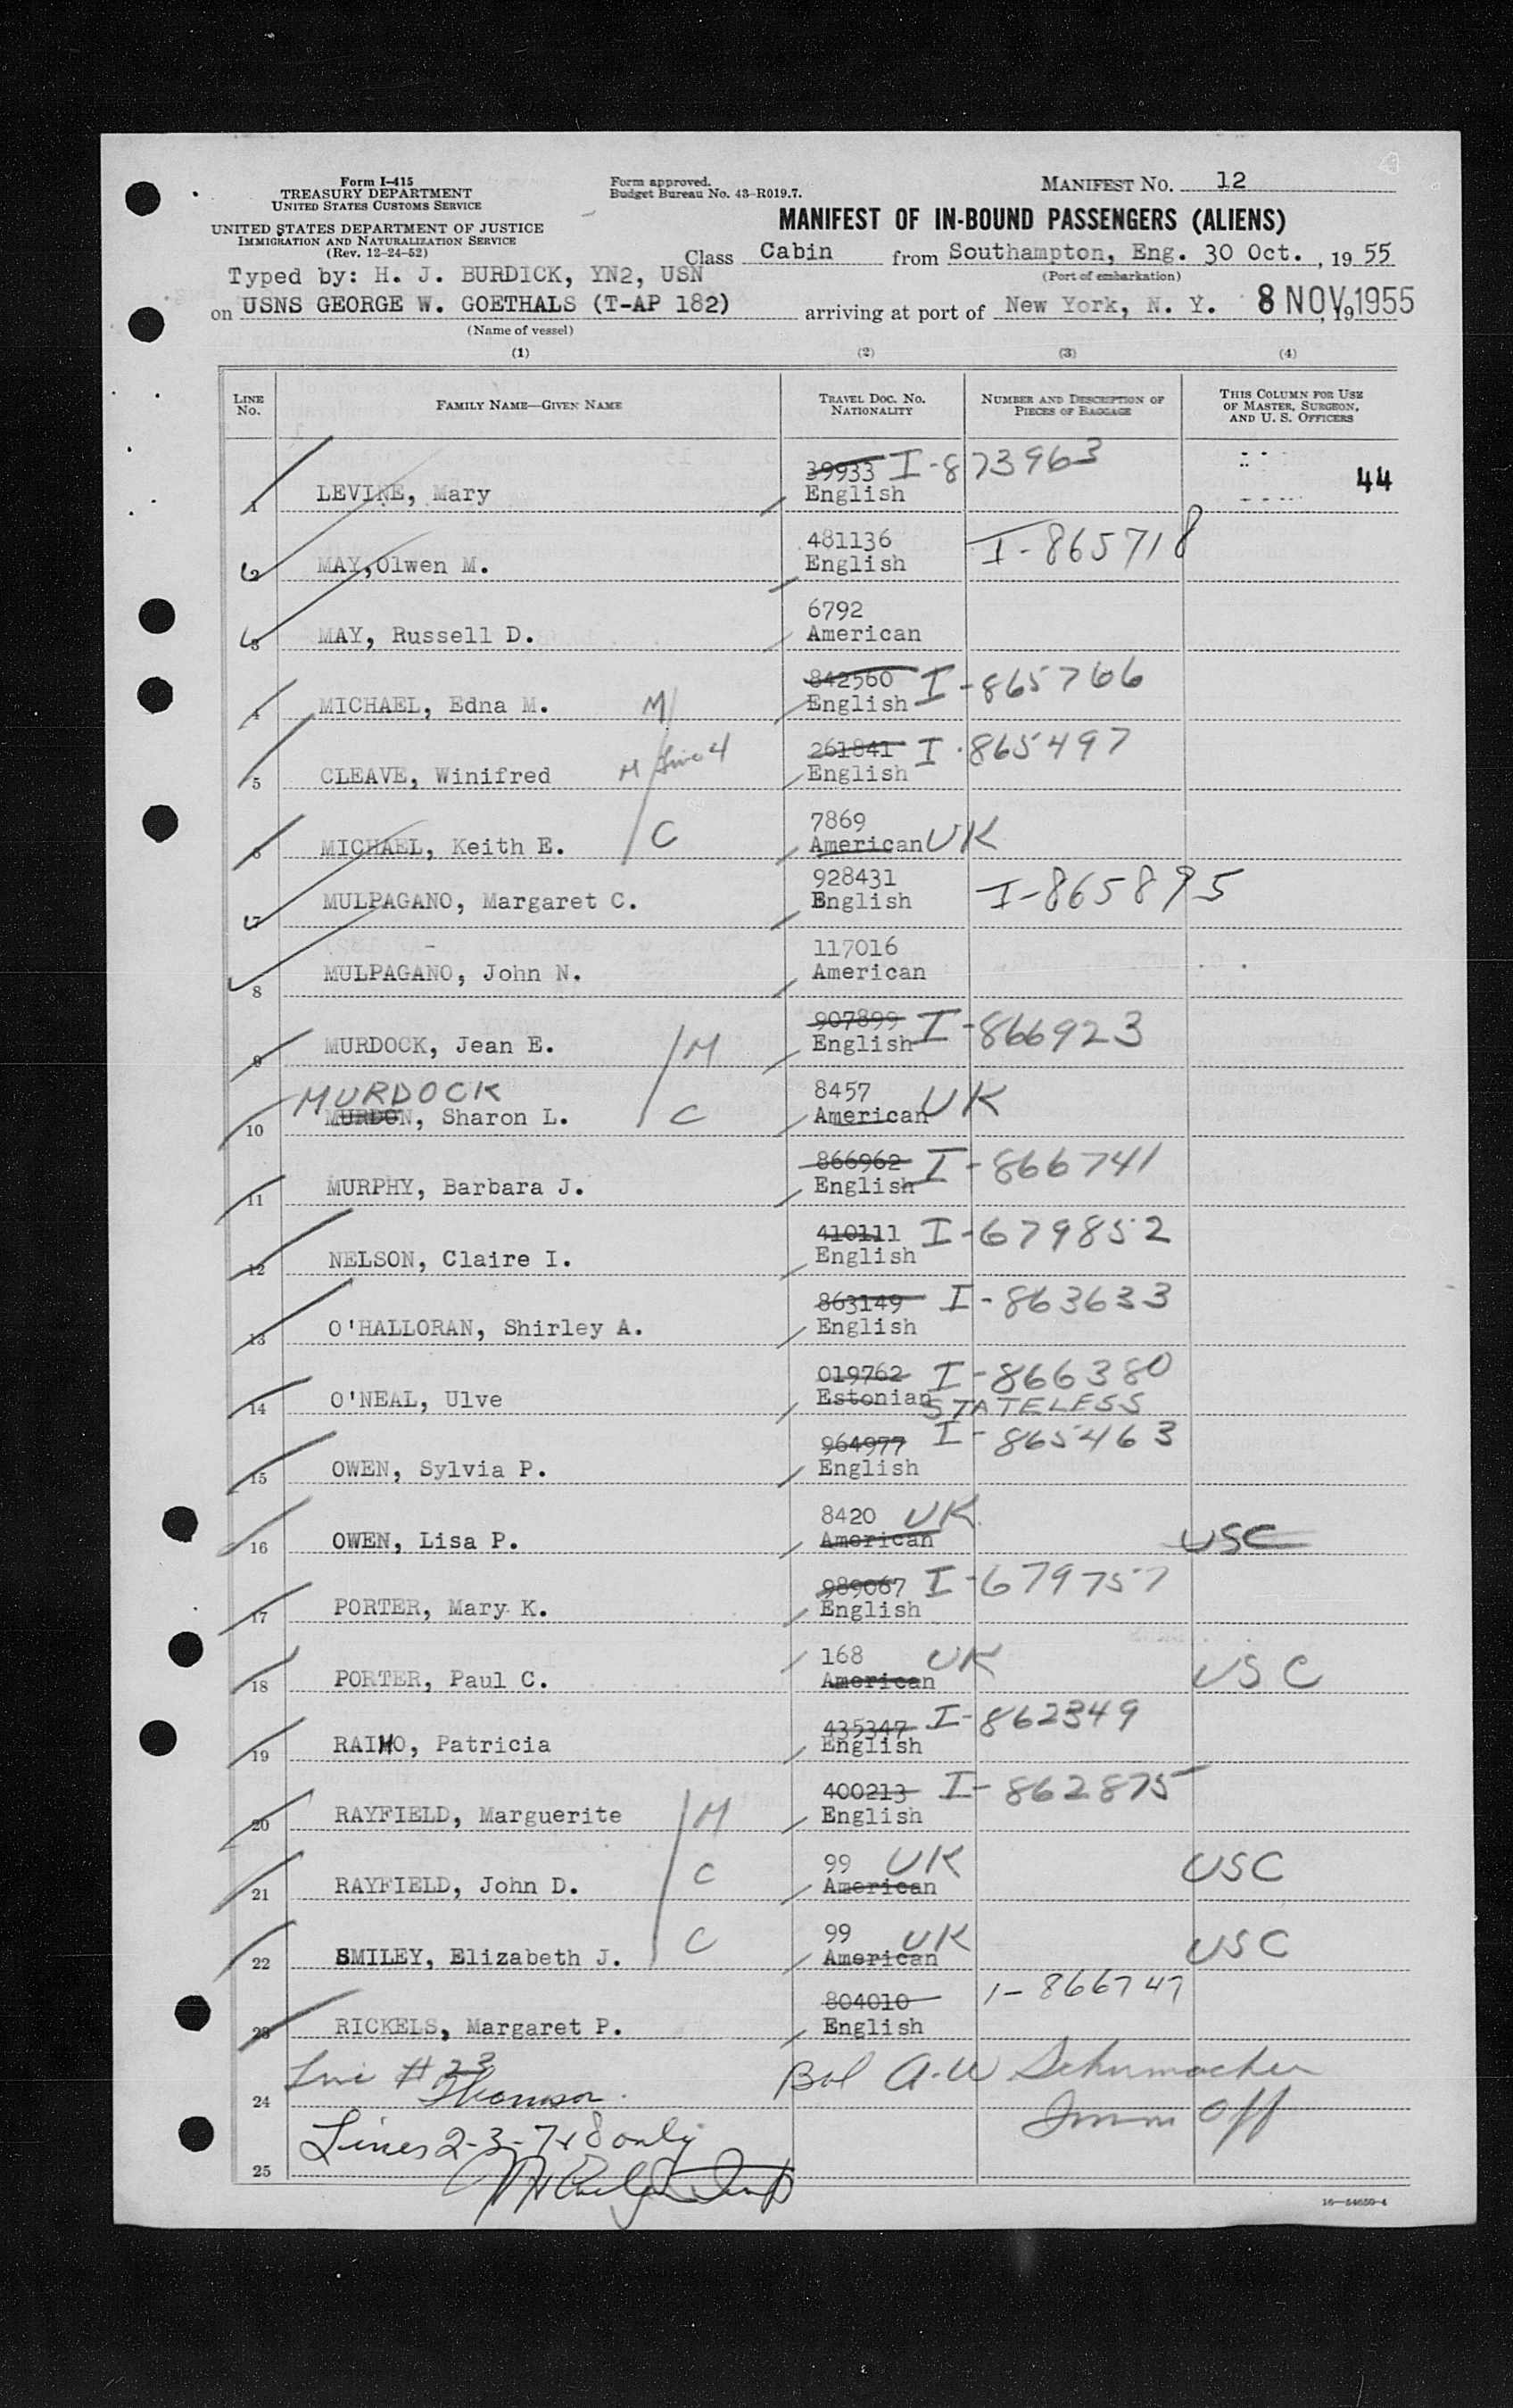 Form I-415
TREASURY DEPARTMENT
UNITED STATES CUSTOMS SERVICE
UNITED STATES DEPARTMENT OF JUSTICE
IMMIGRATION AND NATURALIZATION SERVICE
(Rev. 12-24-52)
Form approved.
Budget Bureau No. 43-R019.7.
MANIFEST NO. 12
MANIFEST OF IN-BOUND PASSENGERS (ALIENS)
Class Cabin from Southampton, Eng. 30 Oct., 1955
(Port of embarkation)
Typed by: H. J. BURDICK, YN2, USN
on USNS GEORGE W. GOETHALS (T-AP 182) arriving at port of New York, N. Y. 8 NOV 1955, 19
(Name of vessel)
(1) (2) (3) (4)
LINE NO. FAMILY NAME—GIVEN NAME TRAVEL DOC. NO. NATIONALITY NUMBER AND DESCRIPTION OF PIECES OF BAGGAGE THIS COLUMN FOR USE OF MASTER, SURGEON, AND U. S. OFFICERS
39933 I-873963
1 LEVINE, Mary English 44
481136 I-865718
2 MAY, Olwen M. English
6792
3 MAY, Russell D. American
842560 I-865766
4 MICHAEL, Edna M. M English
261841 I-865497
5 CLEAVE, Winifred M Line 4 English
7869
6 MICHAEL, Keith E. C American UK
928431 I-865895
7 MULPAGANO, Margaret C. English
117016
8 MULPAGANO, John N. American
907899 I-866923
9 MURDOCK, Jean E. M English
MURDOCK 8457
10 MURDON, Sharon L. C American UK
866962 I-866741
11 MURPHY, Barbara J. English
410111 I-679852
12 NELSON, Claire I. English
863149 I-863633
13 O'HALLORAN, Shirley A. English
019762 I-866380
14 O'NEAL, Ulve Estonian STATELESS
964977 I-865463
15 OWEN, Sylvia P. English
8420 UK
16 OWEN, Lisa P. American USC
989067 I-679757
17 PORTER, Mary K. English
168 UK
18 PORTER, Paul C. American USC
435347 I-862349
19 RAIMO, Patricia English
400213 I-862875
20 RAYFIELD, Marguerite M English
99 UK
21 RAYFIELD, John D. C American USC
99 UK
22 SMILEY, Elizabeth J. C American USC
804010 I-866747
23 RICKELS, Margaret P. English
Line # 23 Bal A.W Schumacher
24 Thomson Imm Off
Lines 2-3-7+8 only
25
16—54650-4